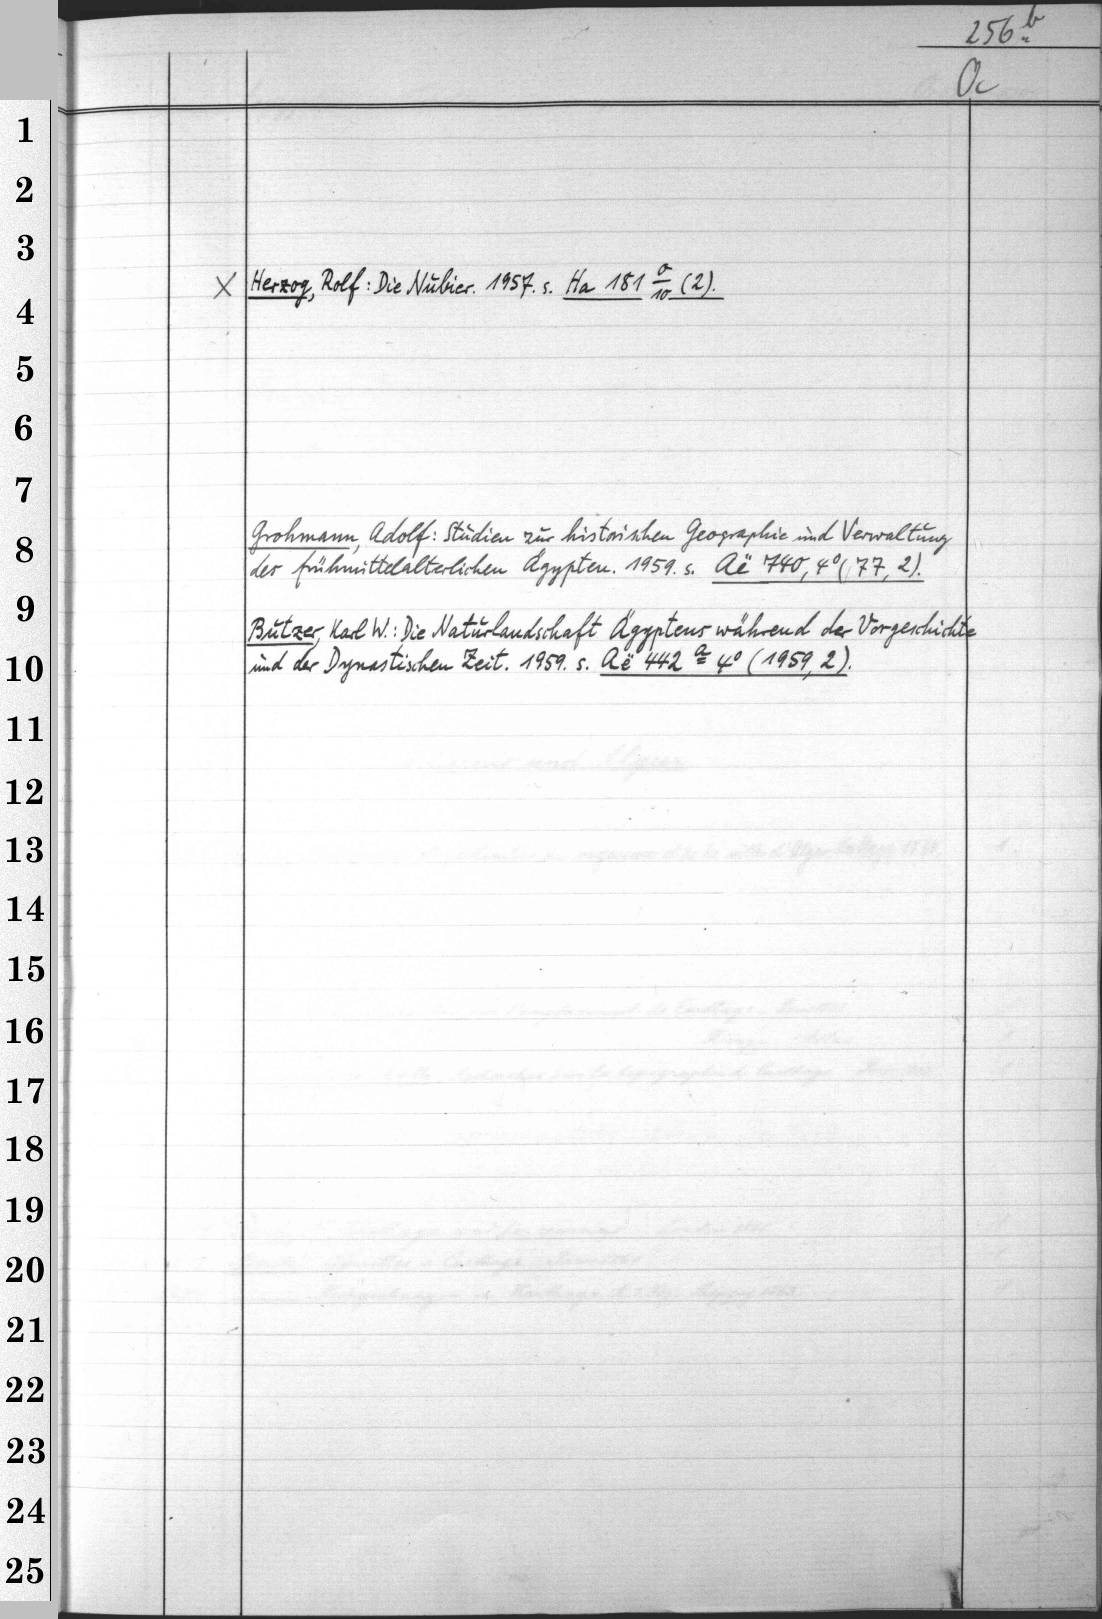 256 b
Oc
1
2
3
× Herzog, Rolf: Die Nubier. 1957. s. Ha 181 a/10 (2).
4
5
6
7
Grohmann, Adolf: Studien zur historischen Geographie und Verwaltung
8
des frühmittelalterlichen Ägypten. 1959. s. Aë 740, 4° (77, 2).
9
Butzer, Karl W.: Die Naturlandschaft Ägyptens während der Vorgeschichte
10
und der Dynastischen Zeit. 1959. s. Aë 442 a 4° (1959, 2).
11
12
13
14
15
16
17
18
19
20
21
22
23
24
25